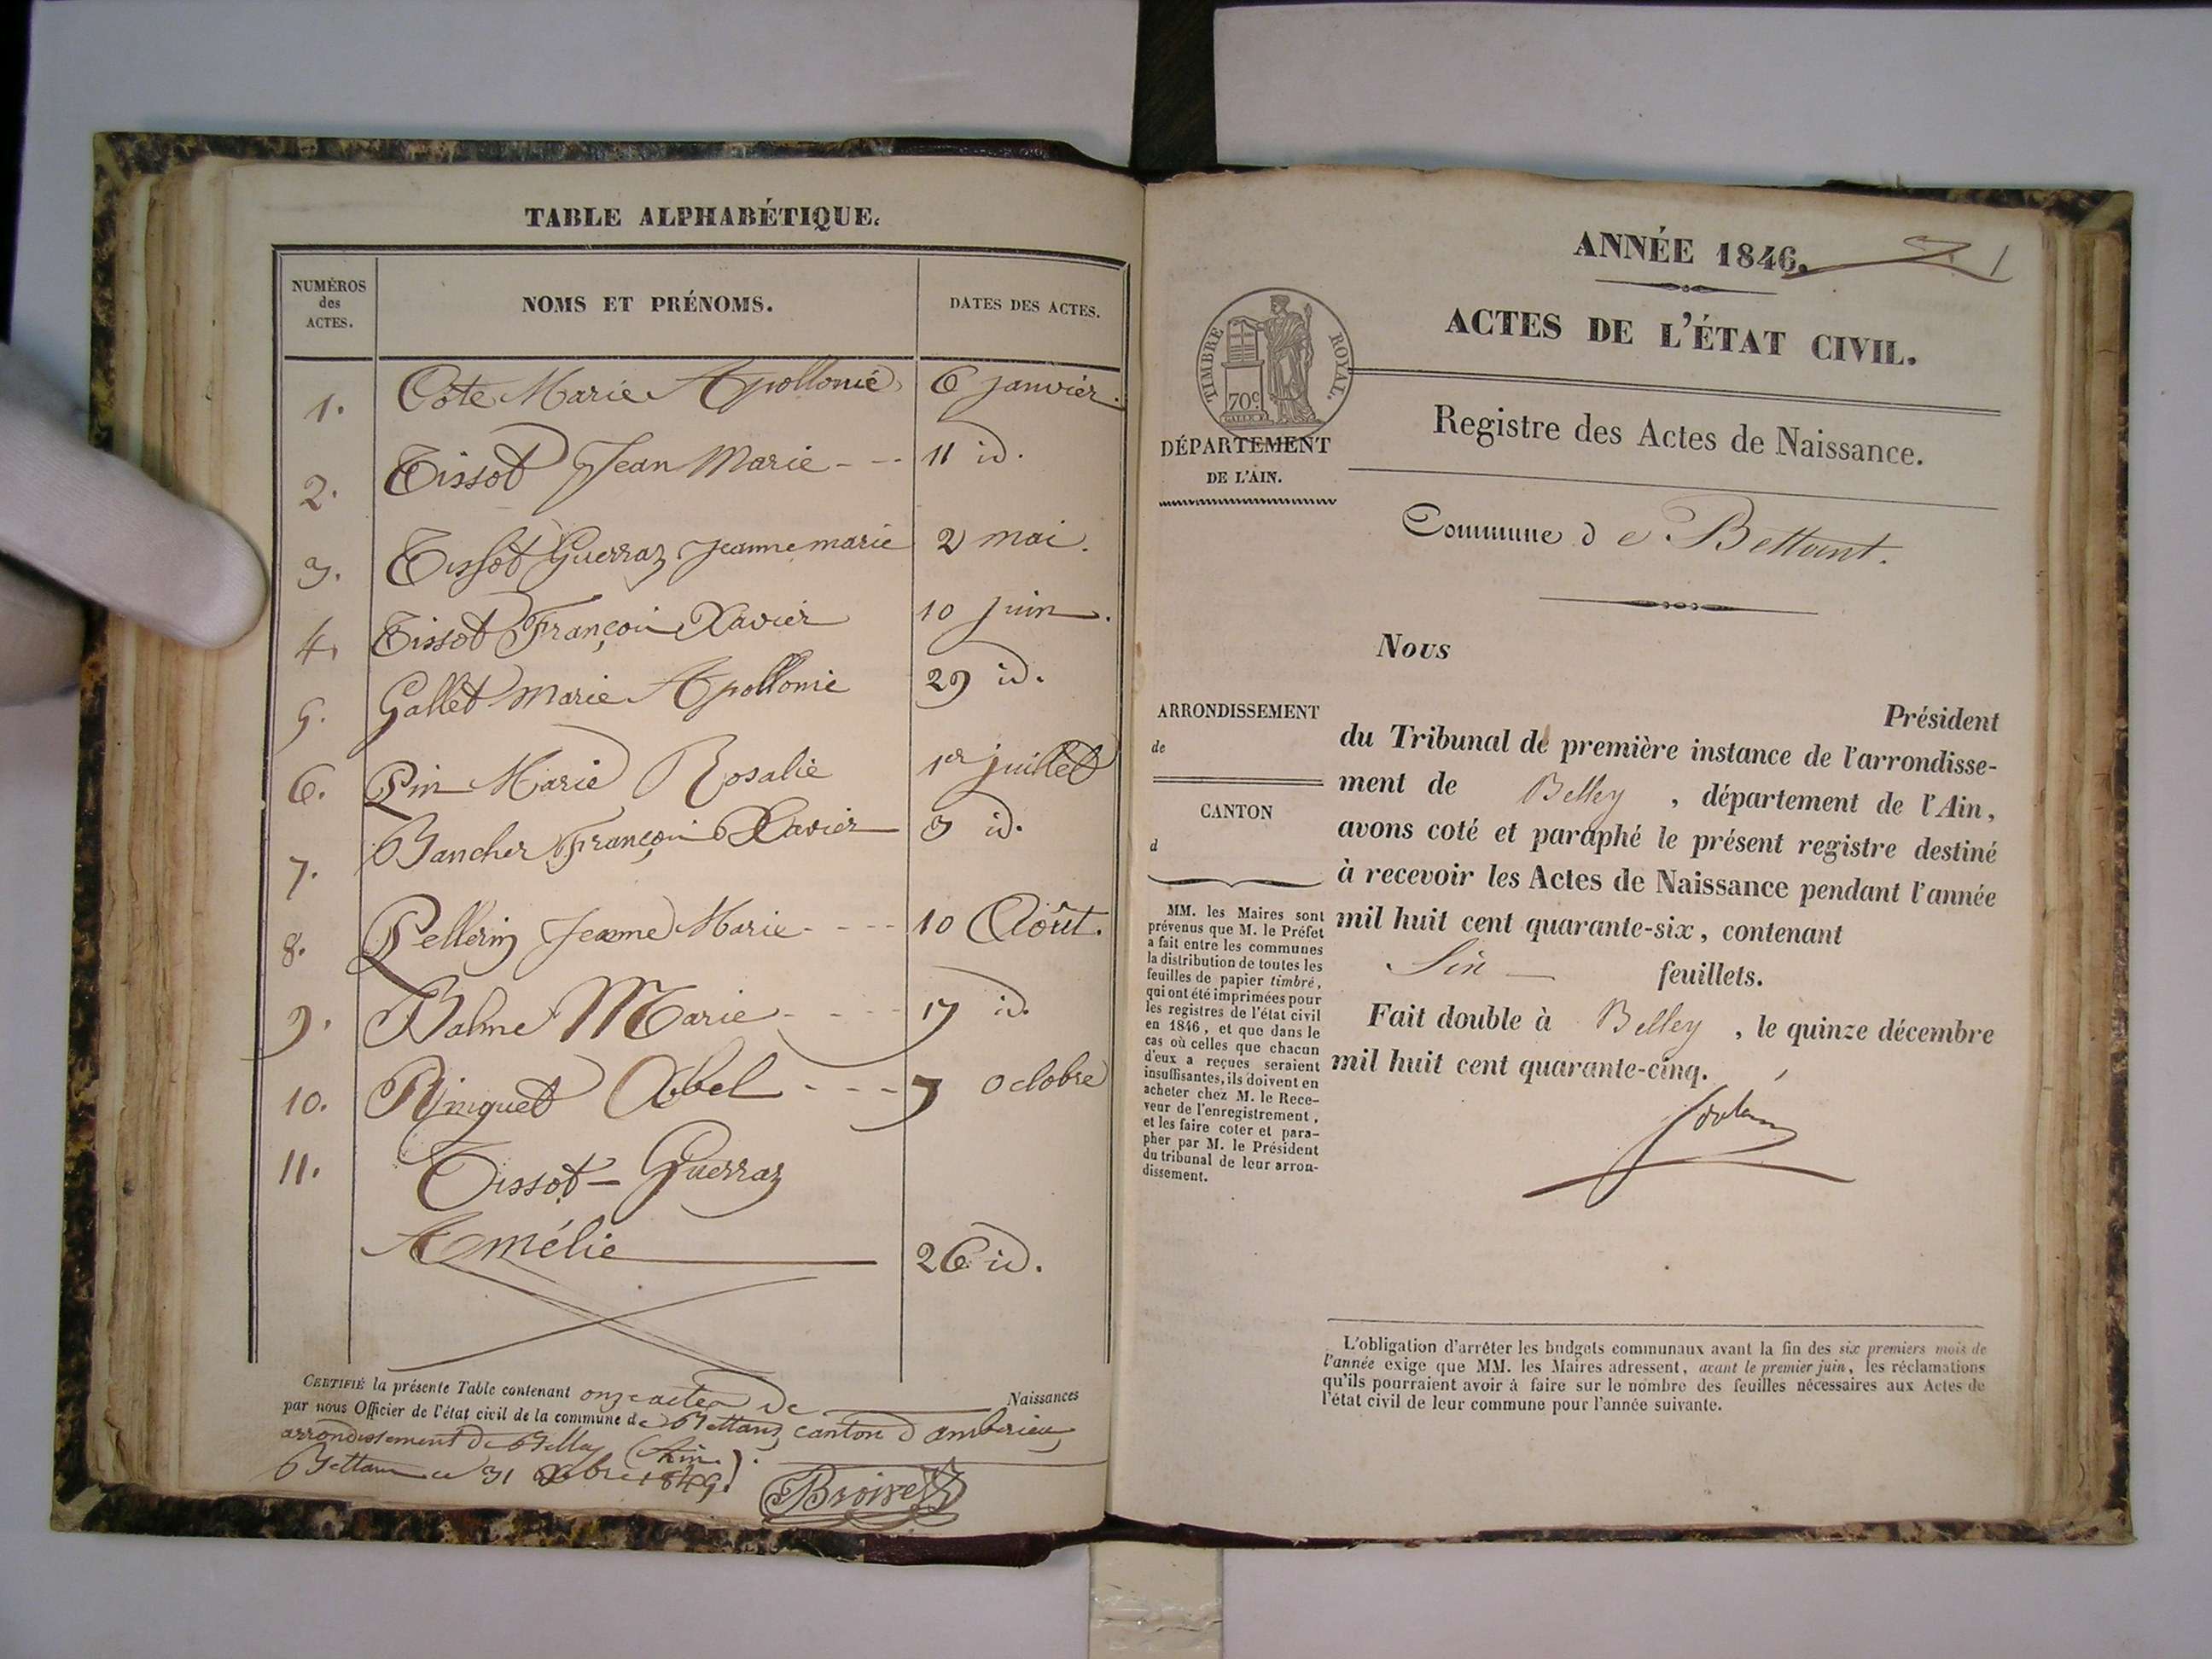 TABLE ALPHABÉTIQUE.
NUMÉROS
des
ACTES.
NOMS ET PRÉNOMS.
DATES DES ACTES.
1. Côte Marie Apollonie 6 janvier.
2. Tissot Jean Marie - - 11 id.
3. Tissot Guerraz Jeanne marie 2 mai.
4. Tissot François Xavier 10 juin.
5. Gallet Marie Apollonie 29 id.
6. Pin Marie Rosalie 1er juillet
7. Bancher François Xavier 3 id.
8. Pellerin Jeanne Marie - - - 10 Août.
9. Balme Marie - - - 17 id.
10. Ringuet Abel - - - 7 octobre
11. Tissot - Guerraz
Amélie 26 id.
CERTIFIÉ la présente Table contenant onze actes de Naissances
par nous Officier de l'état civil de la commune de Bettant, canton d'ambérieu,
arrondissement de Belley (Ain).
Bettant ce 31 Xbre 1845.
ANNÉE 1846. 1
ACTES DE L'ÉTAT CIVIL.
TIMBRE ROYAL.
70c
DÉPARTEMENT
DE L'AIN.
Registre des Actes de Naissance.
Commune de Bettant.
Nous
Président
du Tribunal de première instance de l'arrondisse-
ment de Belley, département de l'Ain,
avons coté et paraphé le présent registre destiné
à recevoir les Actes de Naissance pendant l'année
mil huit cent quarante-six, contenant
Six feuillets.
Fait double à Belley, le quinze décembre
mil huit cent quarante-cinq.
ARRONDISSEMENT
de
CANTON
d
MM. les Maires sont
prévenus que M. le Préfet
a fait entre les communes
la distribution de toutes les
feuilles de papier timbré,
qui ont été imprimées pour
les registres de l'état civil
en 1846, et que dans le
cas où celles que chacun
d'eux a reçues seraient
insuffisantes, ils doivent en
acheter chez M. le Rece-
veur de l'enregistrement,
et les faire coter et para-
pher par M. le Président
du tribunal de leur arron-
dissement.
L'obligation d'arrêter les budgets communaux avant la fin des six premiers mois de
l'année exige que MM. les Maires adressent, avant le premier juin, les réclamations
qu'ils pourraient avoir à faire sur le nombre des feuilles nécessaires aux Actes de
l'état civil de leur commune pour l'année suivante.